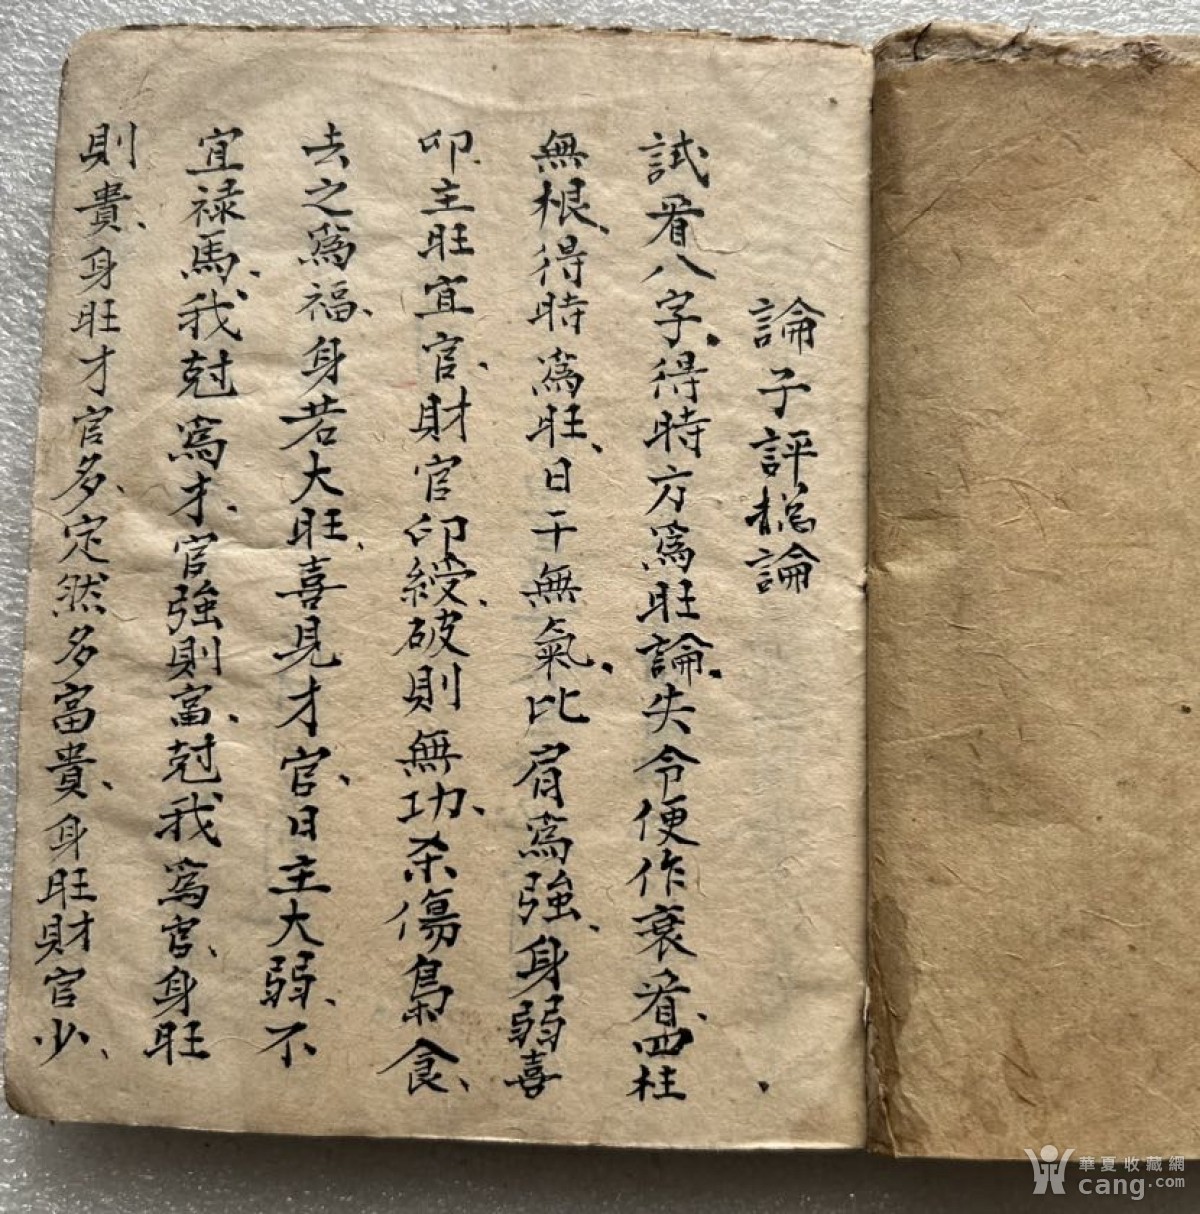 論子評緫論
試看八字、得時方爲旺論、失令便作衰看、四柱
無根、得時爲旺、日干無氣、比肩爲強、身弱喜
印、主旺宜官、財官印綬、破則無功、杀傷梟食、
去之爲福、身若大旺、喜見才官、日主大弱、不
宜禄馬、我尅爲才、官強則富、尅我爲官、身旺
則貴、身旺才官多、定然多富貴、身旺財官少、
華夏收藏網
cang.com